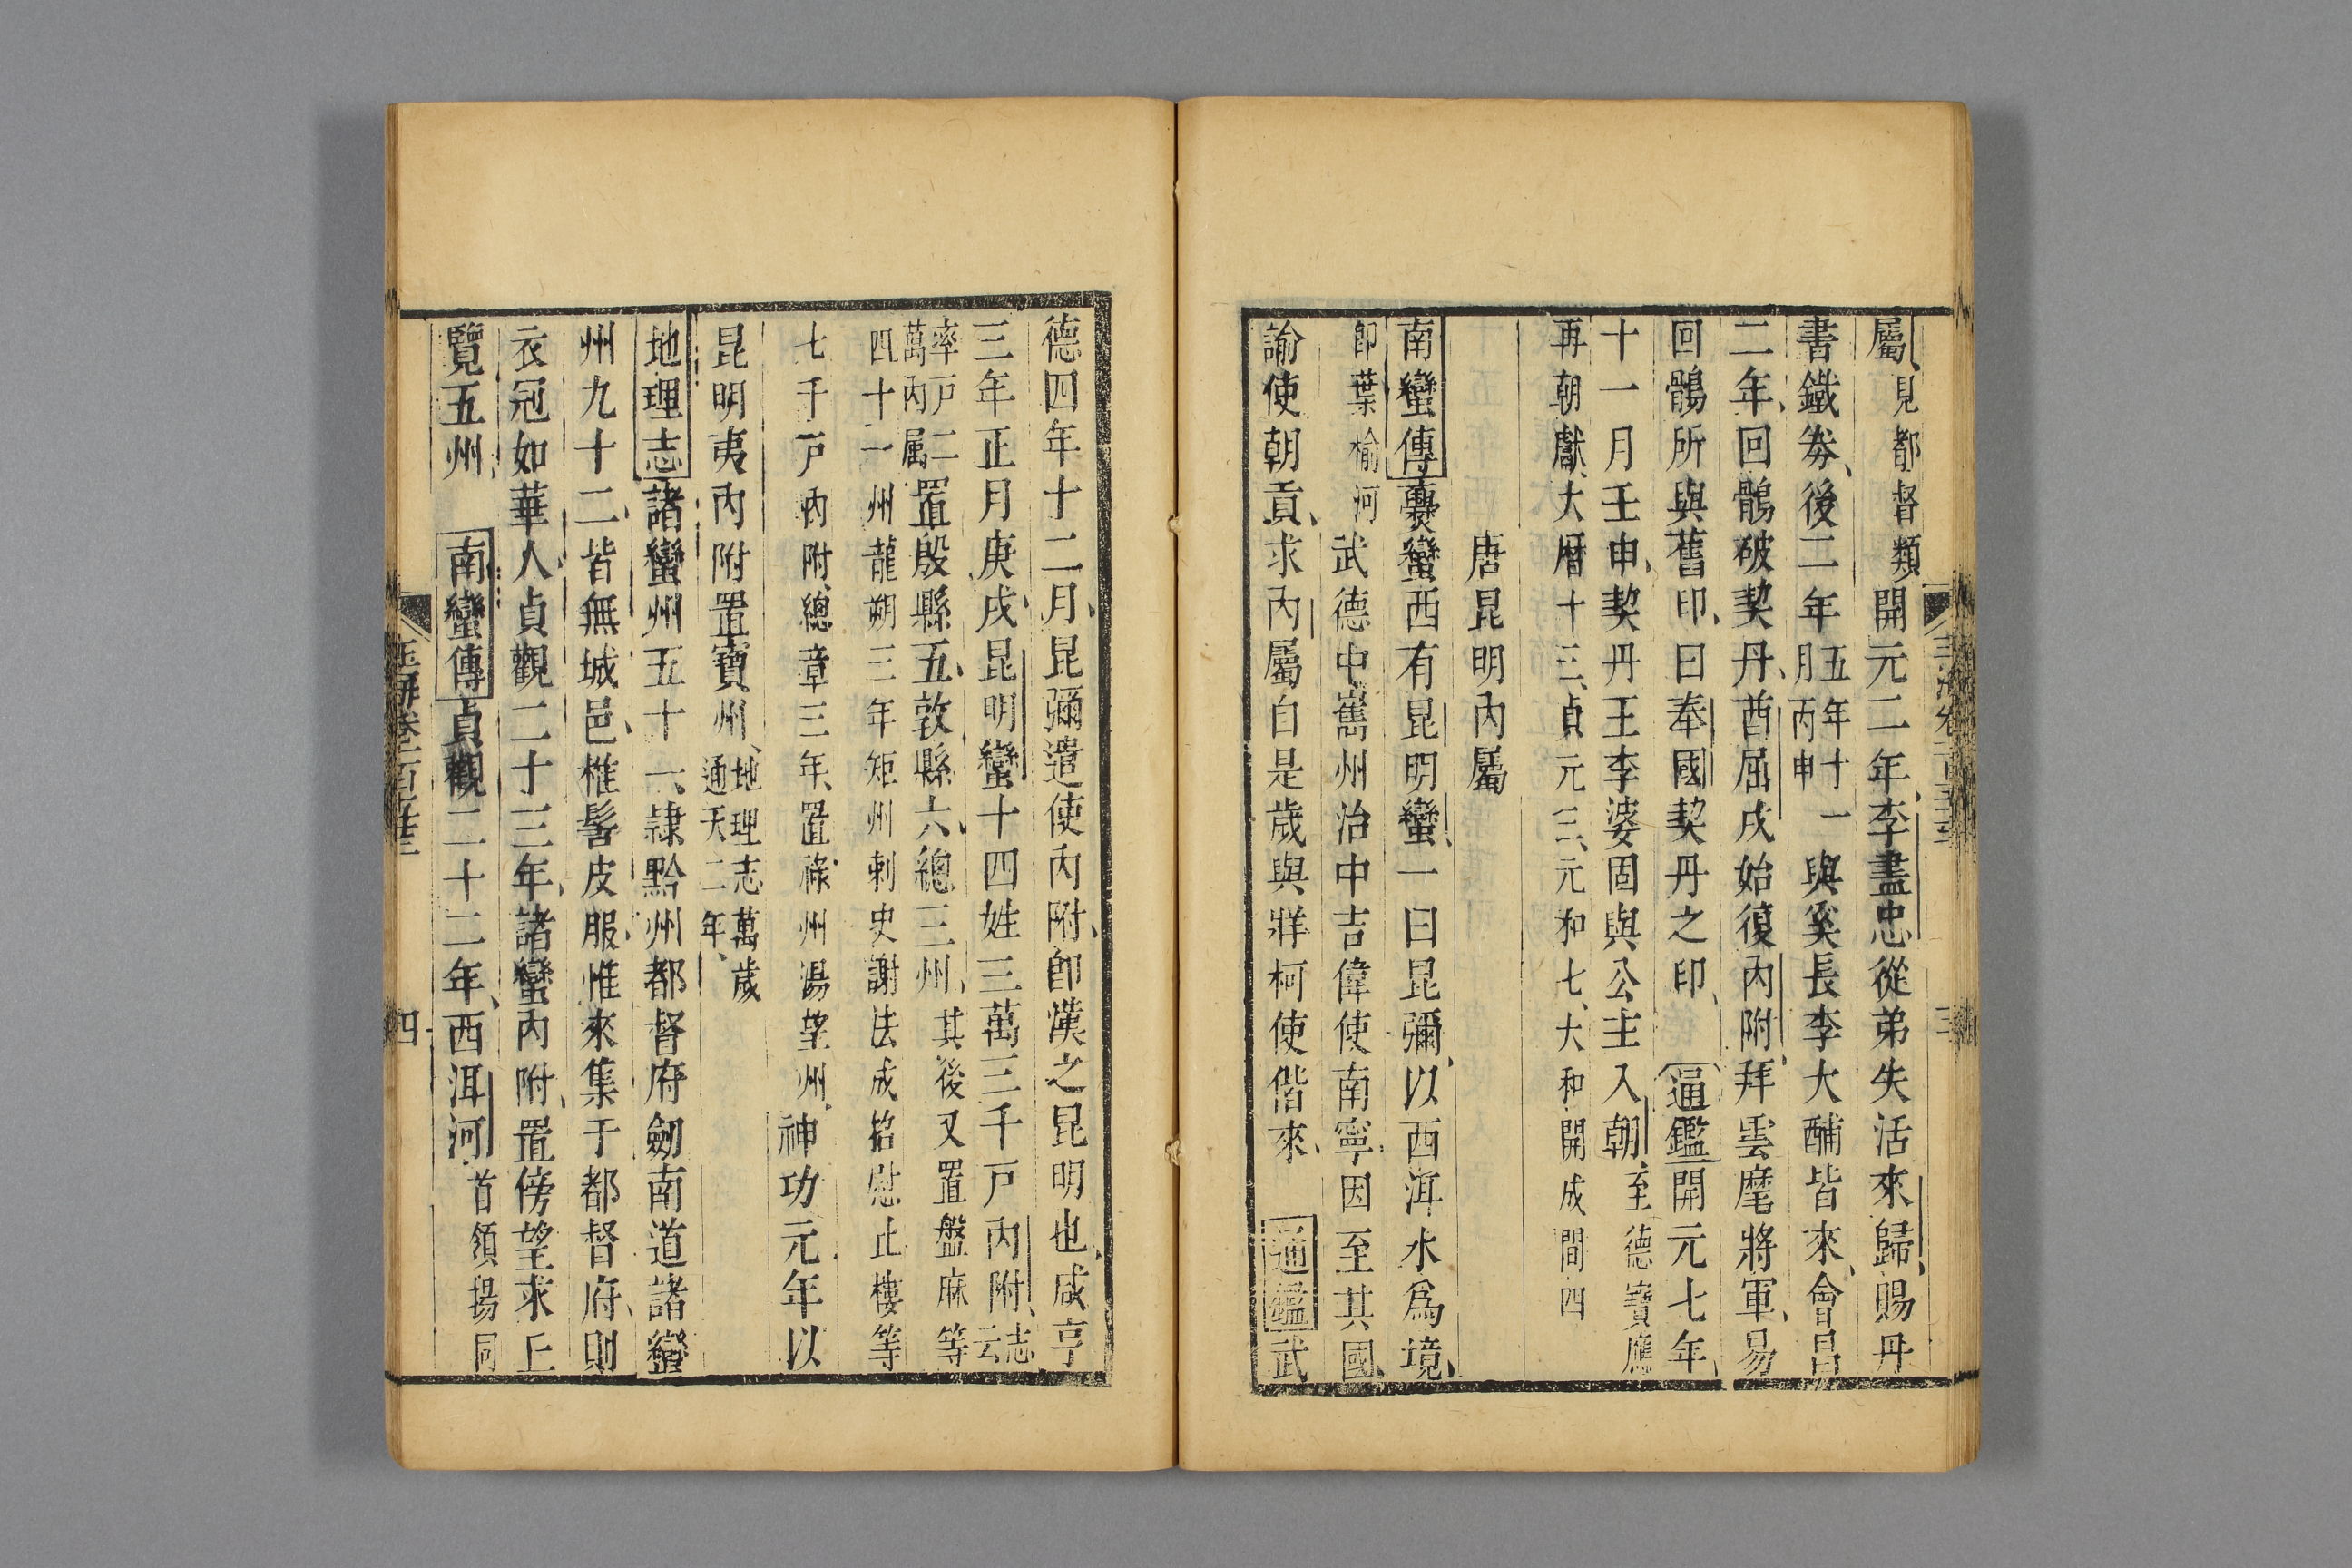 屬見都督類開元二年李盡忠從弟失活來歸賜丹
書鐵券後二年五年十一月丙申與奚長李大酺皆來會昌
二年回鶻破契丹酋屈戌始復內附拜雲麾將軍易
回鶻所與舊印曰奉國契丹之印通鑑開元七年
十一月壬申契丹王李娑固與公主入朝至德寶應
再朝獻大曆十三貞元三元和七大和開成間四
唐昆明內屬
南蠻傳爨蠻西有昆明蠻一曰昆彌以西洱水爲境
卽葉榆河武德中巂州治中吉偉使南寧因至其國
諭使朝貢求內屬自是歲與牂柯使偕來通鑑武
德四年十二月昆彌遣使內附卽漢之昆明也咸亨
三年正月庚戌昆明蠻十四姓三萬三千戶內附志云
率戶二萬內属置殷縣五敦縣六總三州其後又置盤麻等
四十一州龍朔三年矩州刺史謝法成招慰比樓等
七千戶內附總章三年置祿州湯望州神功元年以
昆明夷內附置竇州地理志萬歲通天二年
地理志諸蠻州五十一隷黔州都督府劒南道諸蠻
州九十二皆無城邑椎髻皮服惟來集于都督府則
衣冠如華人貞觀二十三年諸蠻內附置傍望求丘
覽五州南蠻傳貞觀二十二年西洱河首領揚同
四